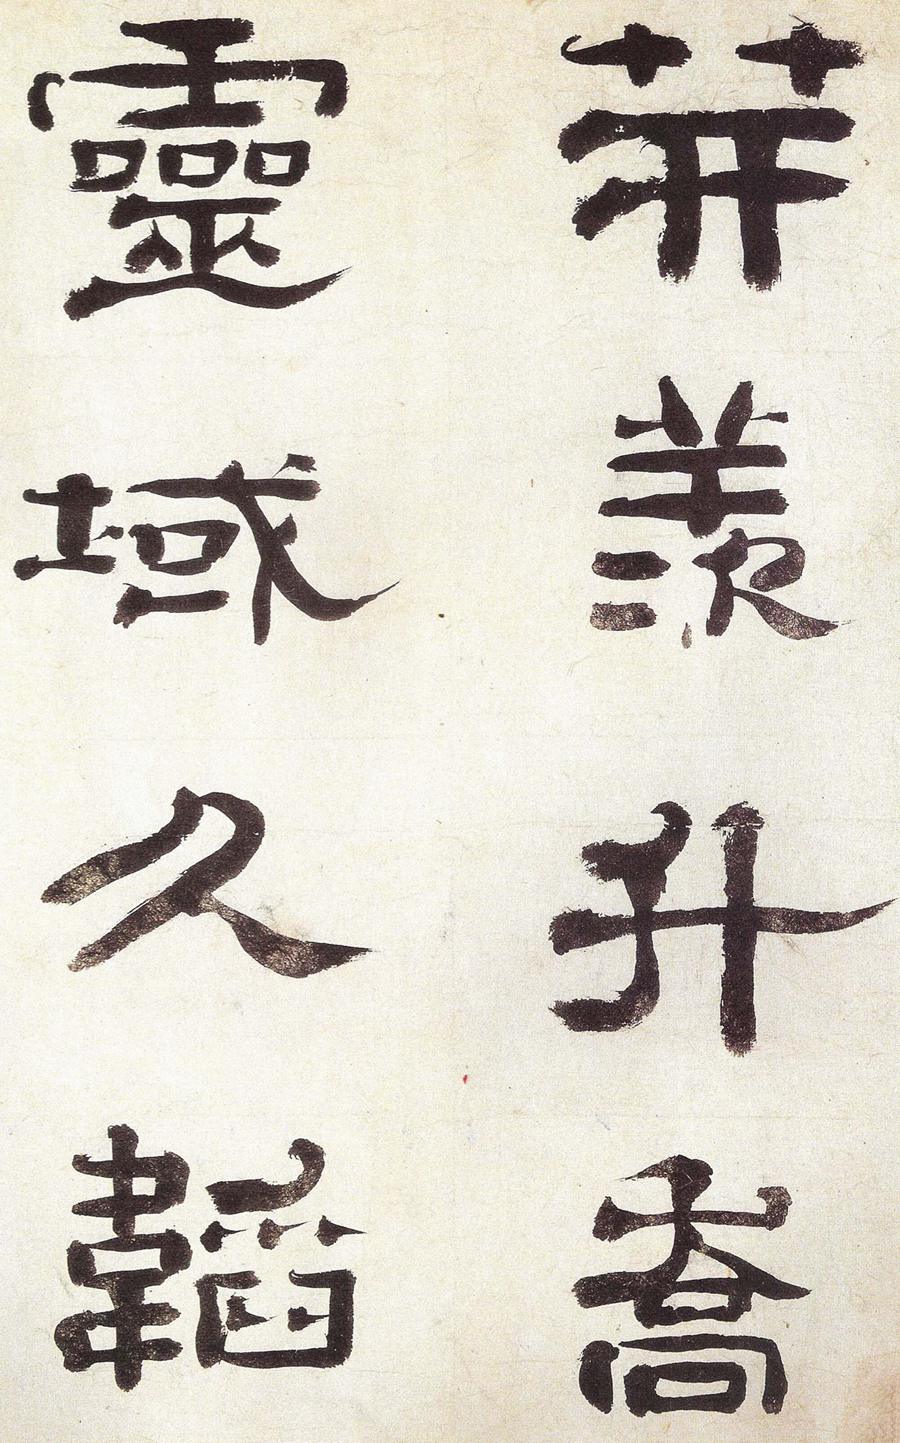 笄羨升喬
靈域久韜